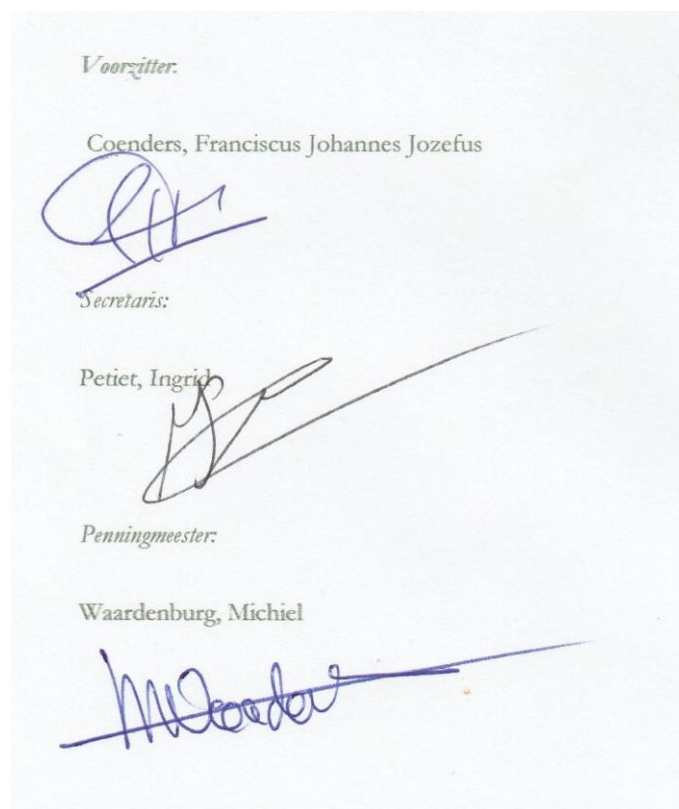 Voorzitter:
Coenders, Franciscus Johannes Jozefus
Secretaris:
Petiet, Ingrid
Penningmeester:
Waardenburg, Michiel